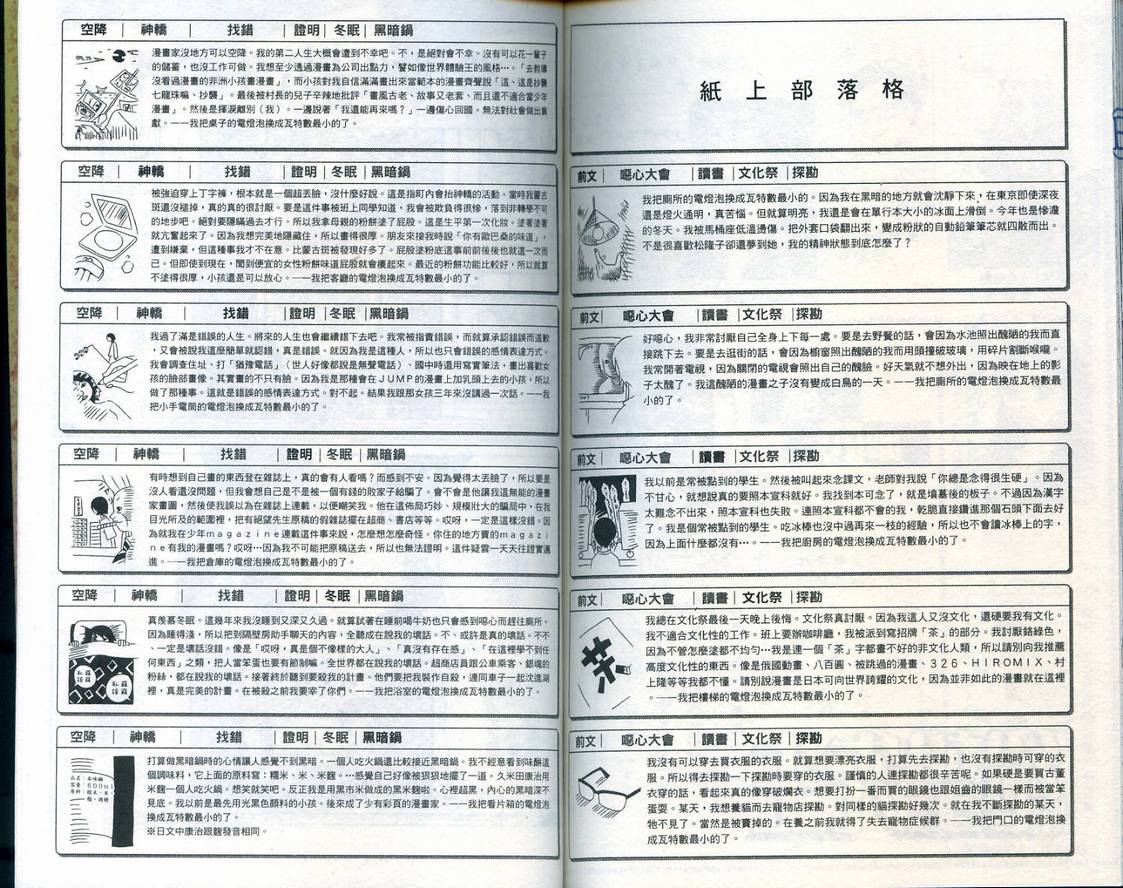 紙上部落格
前文｜ 噁心大會 ｜讀書｜文化祭｜探勘
我把廁所的電燈泡換成瓦特數最小的。因為我在黑暗的地方就會沈靜下來，在東京即使深夜
還是燈火通明，真苦惱。但就算明亮，我還是會在單行本大小的冰面上滑倒。今年也是慘澹
的冬天。我被馬桶座低溫燙傷。把外套口袋翻出來，變成粉狀的自動鉛筆筆芯就四散而出。
不是很喜歡松隆子卻還夢到她，我的精神狀態到底怎麼了？
前文｜ 噁心大會 ｜讀書｜文化祭｜探勘
好噁心，我非常討厭自己全身上下每一處。要是去野餐的話，會因為水池照出醜陋的我而直
接跳下去。要是去逛街的話，會因為櫥窗照出醜陋的我而用頭撞破玻璃，用碎片割斷喉嚨。
我常開著電視，因為關閉的電視會照出自己的醜臉。好天氣就不想外出，因為映在地上的影
子太醜了。我這醜陋的漫畫之子沒有變成白鳥的一天。－－我把廁所的電燈泡換成瓦特數最
小的了。
前文｜ 噁心大會 ｜讀書｜文化祭｜探勘
我以前是常被點到的學生。然後被叫起來念課文，老師對我說「你總是念得很生硬」。因為
不甘心，就想說真的要照本宣科就好。我找到本可念了，就是墳墓後的板子。不過因為漢字
太難念不出來，照本宣科也失敗。連照本宣科都不會的我，乾脆直接鑽進那個石頭下面去好
了。我是個常被點到的學生。吃冰棒也沒中過再來一枝的經驗，所以也不會讀冰棒上的字，
因為上面什麼都沒有…。－－我把廚房的電燈泡換成瓦特數最小的了。
前文｜ 噁心大會 ｜讀書｜文化祭｜探勘
茶
我總在文化祭最後一天晚上後悔。文化祭真討厭。因為我這人又沒文化，還硬要我有文化。
我不適合文化性的工作。班上要辦咖啡廳，我被派到寫招牌「茶」的部分。我討厭銘綠色，
因為不管怎麼塗都不均勻…我是連一個「茶」字都畫不好的非文化人類，所以請別向我推薦
高度文化性的東西。像是俄國動畫、八百圓、被跳過的漫畫、３２６、ＨＩＲＯＭＩＸ、村
上隆等等我都不懂。請別說漫畫是日本可向世界誇耀的文化，因為並非如此的漫畫就在這裡
。－－我把樓梯的電燈泡換成瓦特數最小的了。
前文｜ 噁心大會 ｜讀書｜文化祭｜探勘
我沒有可以穿去買衣服的衣服。就算想要漂亮衣服，打算先去探勘，也沒有探勘時可穿的衣
服。所以得去探勘一下探勘時要穿的衣服。謹慎的人連探勘都很辛苦呢。如果硬是要買古董
衣穿的話，看起來真的像穿破爛衣。想要打扮一番而買的眼鏡也跟姐齒的眼鏡一樣而被當笨
蛋耍。某天，我想養貓而去寵物店探勘。對同樣的貓探勘好幾次。就在我不斷探勘的某天，
牠不見了。當然是被賣掉的。在養之前我就得了失去寵物症候群。－－我把門口的電燈泡換
成瓦特數最小的了。
空降 ｜ 神轎 ｜ 找錯 ｜證明｜冬眠｜黑暗鍋
漫畫家沒地方可以空降。我的第二人生大概會遭到不幸吧。不，是絕對會不幸。沒有可以花一輩子
的儲蓄，也沒工作可做。我想至少透過漫畫為公司出點力，譬如像世界體驗王的風格…。「去教導
沒看過漫畫的非洲小孩畫漫畫」，而小孩對我自信滿滿畫出來當範本的漫畫齊聲說「這、這是抄襲
七龍珠嘛、抄襲」。最後被村長的兒子辛辣地批評「畫風古老、故事又老套、而且還不適合當少年
漫畫」。然後是揮淚離別（我）。一邊說著「我還能再來嗎？」一邊傷心回國。無法對社會做出貢
獻。－－我把桌子的電燈泡換成瓦特數最小的了。
空降 ｜ 神轎 ｜ 找錯 ｜證明｜冬眠｜黑暗鍋
被強迫穿上丁字褲，根本就是一個超丟臉，沒什麼好說。這是指町內會抬神轎的活動。當時我蒙古
斑還沒褪掉，真的真的很討厭。要是這件事被班上同學知道，我會被欺負得很慘，落到非轉學不可
的地步吧。絕對要隱瞞過去才行。所以我拿母親的粉餅塗了屁股。這是生平第一次化妝。塗著塗著
就亢奮起來了。因為我想完美地隱藏住，所以畫得很厚。朋友來接我時說「你有歐巴桑的味道」，
遭到嫌棄，但這種事我才不在意。比蒙古斑被發現好多了。屁股塗粉底這事前前後後也就這一次而
已。但即使到現在，聞到便宜的女性粉餅味道屁股就會癢起來。最近的粉餅功能比較好，所以就算
不塗得很厚，小孩還是可以放心。－－我把客廳的電燈泡換成瓦特數最小的了。
空降 ｜ 神轎 ｜ 找錯 ｜證明｜冬眠｜黑暗鍋
我過了滿是錯誤的人生。將來的人生也會繼續錯下去吧。我常被指責錯誤，而就算承認錯誤而道歉
，又會被說我這麼簡單就認錯，真是錯誤。就因為我是這種人，所以也只會錯誤的感情表達方式。
我會調查住址、打「猶豫電話」（世人好像都說是無聲電話）、國中時還用寫實筆法，畫出喜歡女
孩的臉部畫像。其實畫的不只有臉。因為我是那種會在ＪＵＭＰ的漫畫上加乳頭上去的小孩，所以
做了那種事。這就是錯誤的感情表達方式。對不起。結果我跟那女孩三年來沒講過一次話。－－我
把小手電筒的電燈泡換成瓦特數最小的了。
空降 ｜ 神轎 ｜ 找錯 ｜證明｜冬眠｜黑暗鍋
有時想到自己畫的東西登在雜誌上，真的會有人看嗎？而感到不安。因為覺得太丟臉了，所以要是
沒人看還沒問題，但我會想自己是不是被一個有錢的敗家子給騙了。會不會是他讓我這無能的漫畫
家畫圖，然後使我誤以為在雜誌上連載，以便嘲笑我。他在這佈局巧妙、規模壯大的騙局中，在我
目光所及的範圍裡，把有絕望先生原稿的假雜誌擺在超商、書店等等。哎呀，一定是這樣沒錯。因
為就我在少年ｍａｇａｚｉｎｅ連載這件事來說，怎麼想怎麼奇怪。你住的地方賣的ｍａｇａｚｉ
ｎｅ有我的漫畫嗎？哎呀…因為我不可能把原稿送去，所以也無法證明。這件疑雲一天天往證實邁
進。－－我把倉庫的電燈泡換成瓦特數最小的了。
空降 ｜ 神轎 ｜ 找錯 ｜證明｜冬眠｜黑暗鍋
真羨慕冬眠。這幾年來我沒睡到又深又久過。就算試著在睡前喝牛奶也只會感到噁心而趕往廁所。
因為睡得淺，所以把到隔壁房助手聊天的內容，全聽成在說我的壞話。不、或許是真的壞話。不不
、一定是壞話沒錯。像是「哎呀，真是個不像樣的大人」、「真沒有存在感」、「在這裡學不到任
何東西」之類，把人當笨蛋也要有節制嘛。全世界都在說我的壞話。超商店員跟公車乘客、銀魂的
粉絲，都在說我的壞話。接著終於聽到要殺我的計畫。他們要把我裝作自殺，連同車子一起沈進湖
裡，真是完美的計畫。在被殺之前我要宰了你們。－－我把浴室的電燈泡換成瓦特數最小的了。
空降 ｜ 神轎 ｜ 找錯 ｜證明｜冬眠｜黑暗鍋
品名：本味醂
容量：600ml
打算做黑暗鍋時的心情讓人感覺不到黑暗。一個人吃火鍋還比較接近黑暗鍋。我不經意看到味醂這
個調味料，它上面的原料寫：糯米、米、米麴。…感覺自己好像被狠狠地擺了一道。久米田康治用
米麴一個人吃火鍋。想笑就笑吧。反正我是用黑市米做成的黑米麴啦。心裡超黑，內心的黑暗深不
見底。我以前是最先用光黑色顏料的小孩。後來成了少有彩頁的漫畫家。－－我把看片箱的電燈泡
換成瓦特數最小的了。
※日文中康治跟麴發音相同。